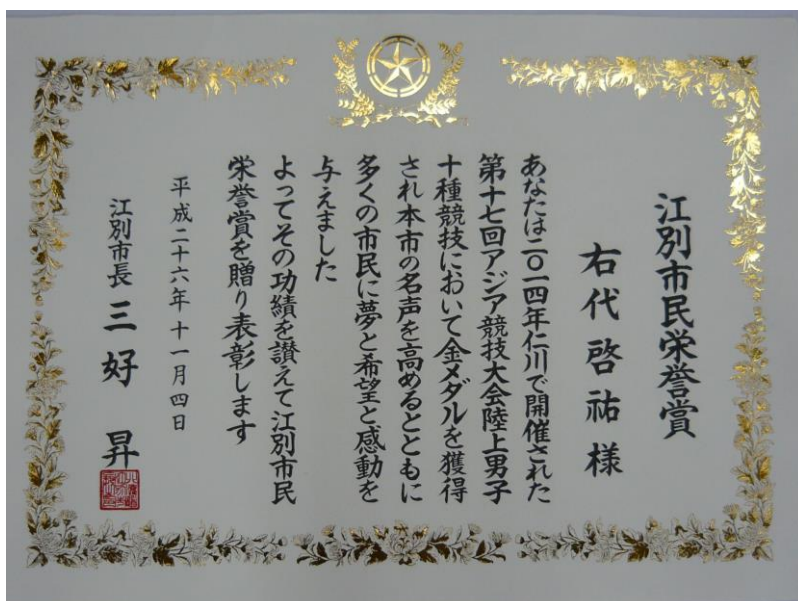 江別市民栄誉賞
右代啓祐様
あなたは二〇一四年仁川で開催された
第十七回アジア競技大会陸上男子
十種競技において金メダルを獲得
され本市の名声を高めるとともに
多くの市民に夢と希望と感動を
与えました
よってその功績を讃えて江別市民
栄誉賞を贈り表彰します
平成二十六年十一月四日
江別市長 三好 昇